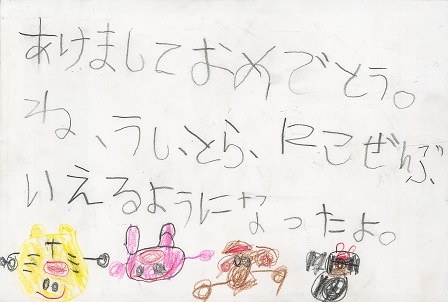 あけましておめでとう。
ね、うし、とら、ぜんぶ
いえるようになったよ。